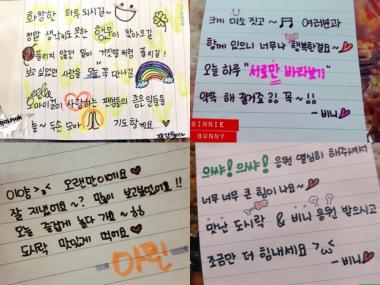 화창한 하루 되시길~
정말 생각지도 못한 행운이 찾아오길
풀리지 않았던 일이 거짓말처럼 풀리길!
보고싶었던 사람을 오늘 꼭 만나길
오마이걸이 사랑하는 팬분들의 좋은 일들을
늘~ 두손 모아 기도할게요..
크게 미소 짓고~ 여러분과
함께 있으니 너무나 행복한걸요~
오늘 하루 "서로만 바라보기"
약속 해 줄거죠? 꼭~!!
-비니
BINNIE
BUNNY
이야 >,< 오랜만이에요
잘 지냈어요~? 많이 보고싶었어요!!
오늘 즐겁게 놀다 가요~ ㅎㅎ
도시락 맛있게 먹어요
아린
으쌰! 으쌰! 응원 열심히 해주셔서
너무 너무 큰 힘이 나요~
맛난 도시락 & 비니 응원 받으시고
조금만 더 힘내세요 >ω<
-비니